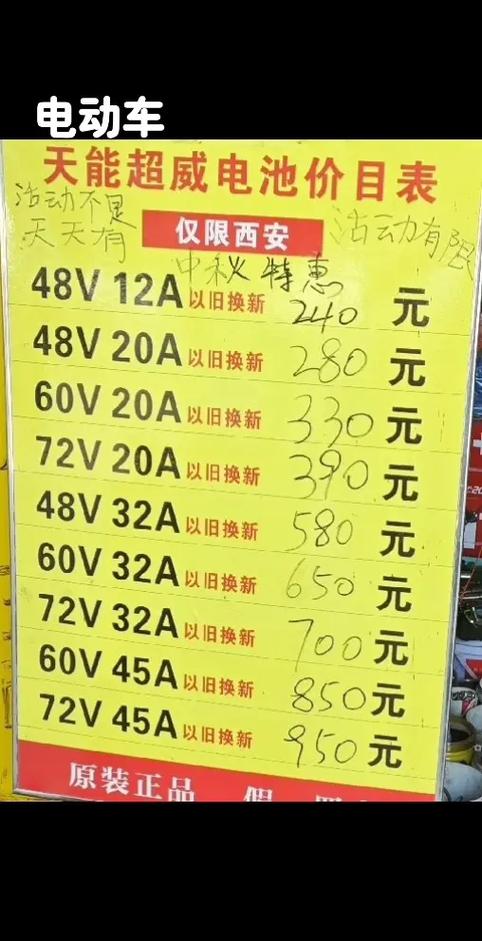 电动车
天能超威电池价目表
活动不是
天天有
仅限西安
活动有限
中秋特惠
48V 12A以旧换新 240 元
48V 20A以旧换新 280 元
60V 20A以旧换新 330 元
72V 20A以旧换新 390 元
48V 32A以旧换新 580 元
60V 32A以旧换新 650 元
72V 32A以旧换新 700 元
60V 45A以旧换新 850 元
72V 45A以旧换新 950 元
原装正品 假